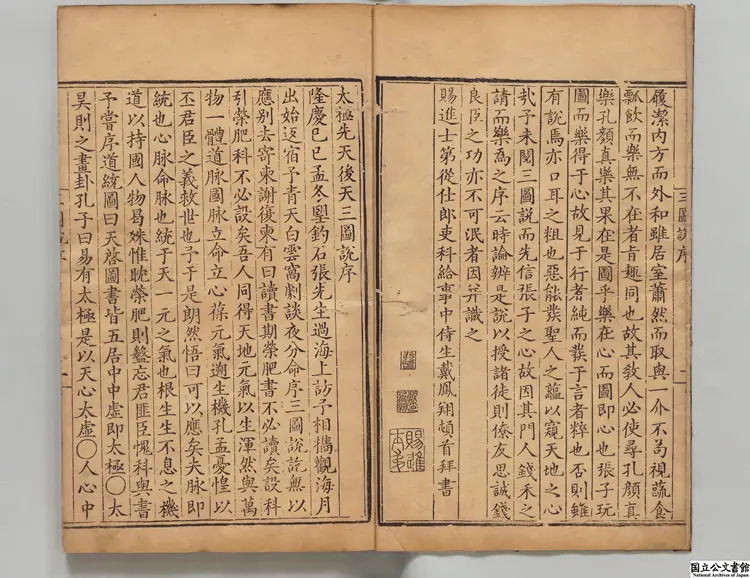 三圖說序
履潔內方而外和雖居室蕭然而取與一介不苟視蔬食
瓢飲而樂無不在者肯趣同也故其教人必使尋孔顏真
樂孔顏真樂其果在是圖乎樂在心而圖即心也張子玩
圖而樂得于心故見于行者純而發于言者粹也否則雖
有說焉亦口耳之粗也惡能發聖人之蘊以窺天地之心
哉予未閱三圖說而先信張子之心故因其門人錢禾之
請而樂為之序云時論辨是說以授諸徒則僚友思誠錢
良臣之功亦不可泯者因并識之
賜進士第從仕郎吏科給事中侍生戴鳳翔頓首拜書
太極先天後天三圖說序
隆慶己巳孟冬墅釣石張先生過海上訪予相攜觀海月
出始返宿予青天白雲窩劇談夜分命序三圖說說無以
應別去寄柬謝復柬有曰讀書期榮肥書不必讀矣設科
引榮肥科不必設矣吾人同得天地元氣以生渾然與萬
物一體道脉國脉立命立心葆元氣遡生機孔孟憂惶以
丕君臣之義救世也予于是朗然悟曰可以應矣夫脉即
統也心脉命脉也統于天一元之氣也根生生不息之機
道以持國人物曷殊惟眈榮肥則盭忘君匪臣愧科與書
予嘗序道統圖曰天啓圖書皆五居中中虛即太極○太
昊則之畫卦孔子曰易有太極是以天心太虛○人心中
国立公文書館
National Archives of Japan